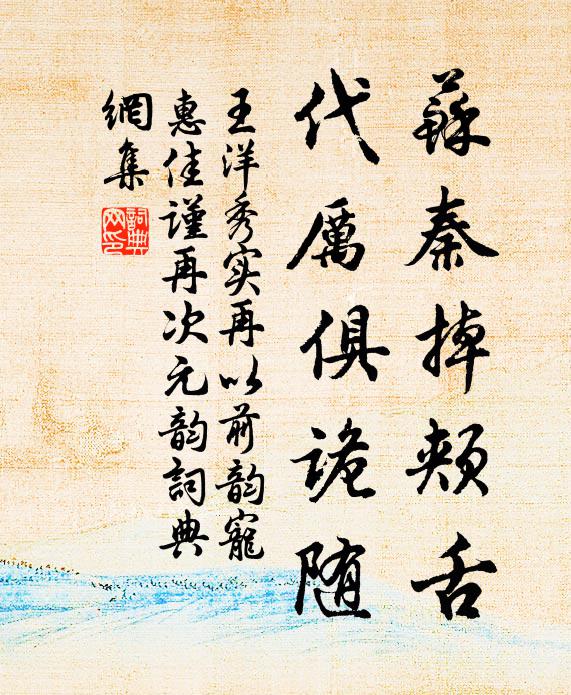 蘇秦掉頰舌
代厲俱詭随
王洋秀实再以前韵寵
惠佳謹再次元韵詞典
網集
詞典网印